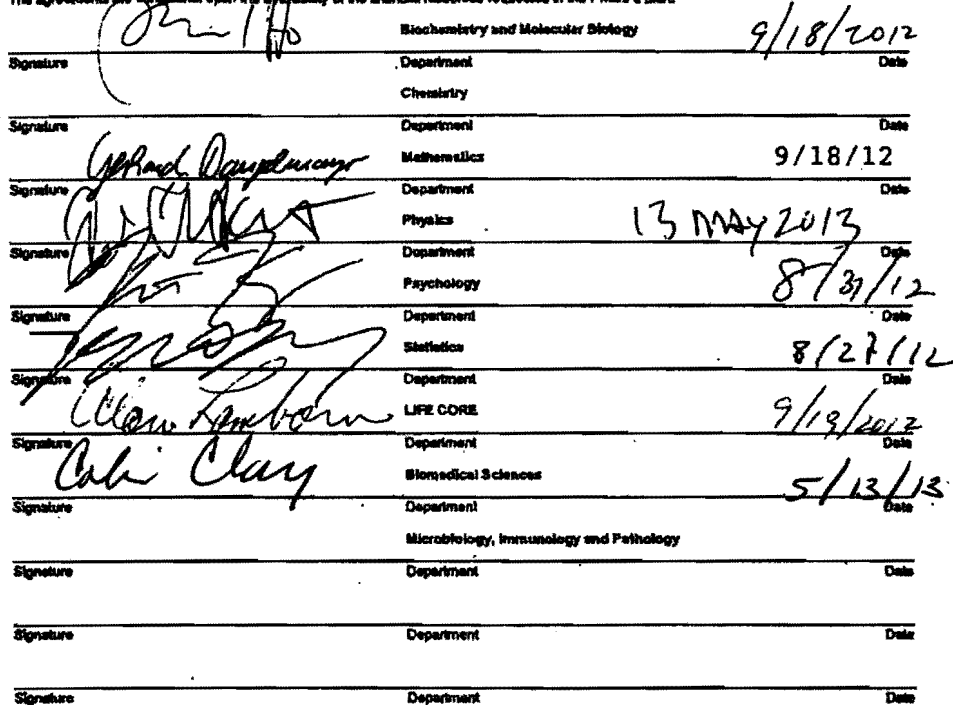 Biochemistry and Molecular Biology 9/18/2012
Signature Department Date
Chemistry
Signature Department Date
Gerhard Dangelmayr Mathematics 9/18/12
Signature Department Date
Physics 13 MAY 2013
Signature Department Date
Psychology 8/31/12
Signature Department Date
Statistics 8/27/12
Signature Department Date
LIFE CORE 9/19/2012
Signature Department Date
Colin Clay Biomedical Sciences 5/13/13
Signature Department Date
Microbiology, Immunology and Pathology
Signature Department Date
Signature Department Date
Signature Department Date